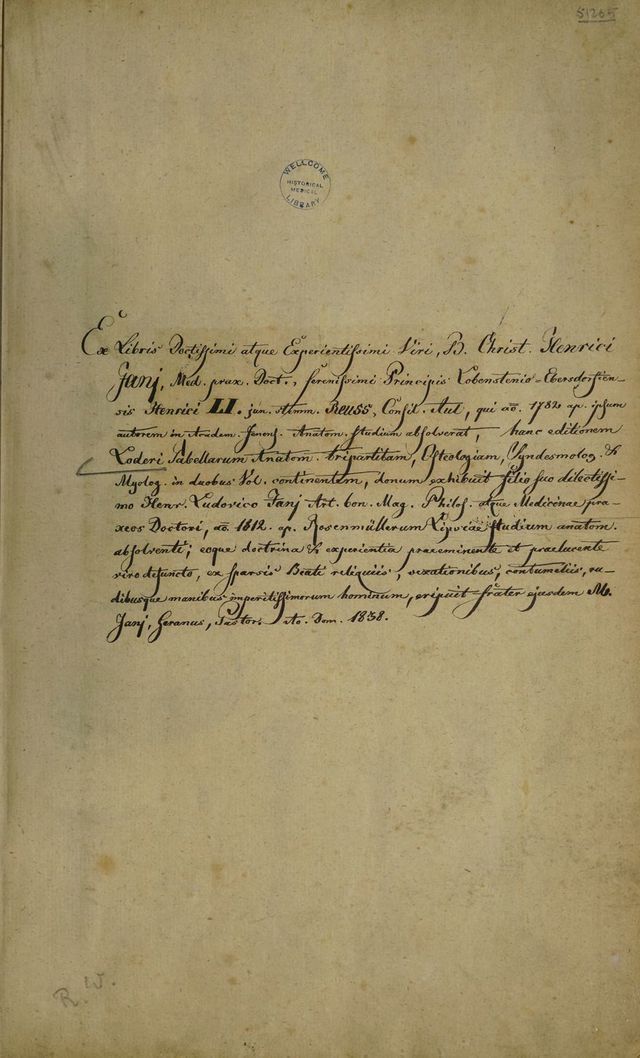 51265
WELLCOME
HISTORICAL
MEDICAL
LIBRARY
Ex Libris Doctissimi atque Experientissimi Viri, B. Christ. Henrici
Janj, Med. prax. Doct., serenissimi Principis Lobenstenio-Ebersdorfien-
sis Henrici LI. jun. Reuss, Consil. Aul, qui ao. 1782 ap. ipsum
autorem in Academ. Jenens. Anatom. studium absolverat, hanc editionem
Loderi Tabellarum Anatom. tripartitam, Osteologiam, Syndesmolog. &
Myolog. in duobus Vol. continentem, donum exhibuit filio suo dilectissi-
mo Henr. Ludovico Janj Art. bon. Mag. Philos. atque Medicinae pra-
xeos Doctori, ao. 1812 ap. Rosenmüllerum Lipsiae studium anatom.
absolventi; eoque doctrina & experientia praeeminente et praelucente
viro defuncto, ex sparsis Beati reliquiis, vexationibus, contumeliis, ru-
dibusque manibus imperitissimorum hominum, eripuit frater ejusdem M.
Janj, Geranus, Pastor. Ao. Dom. 1838.
R. W.